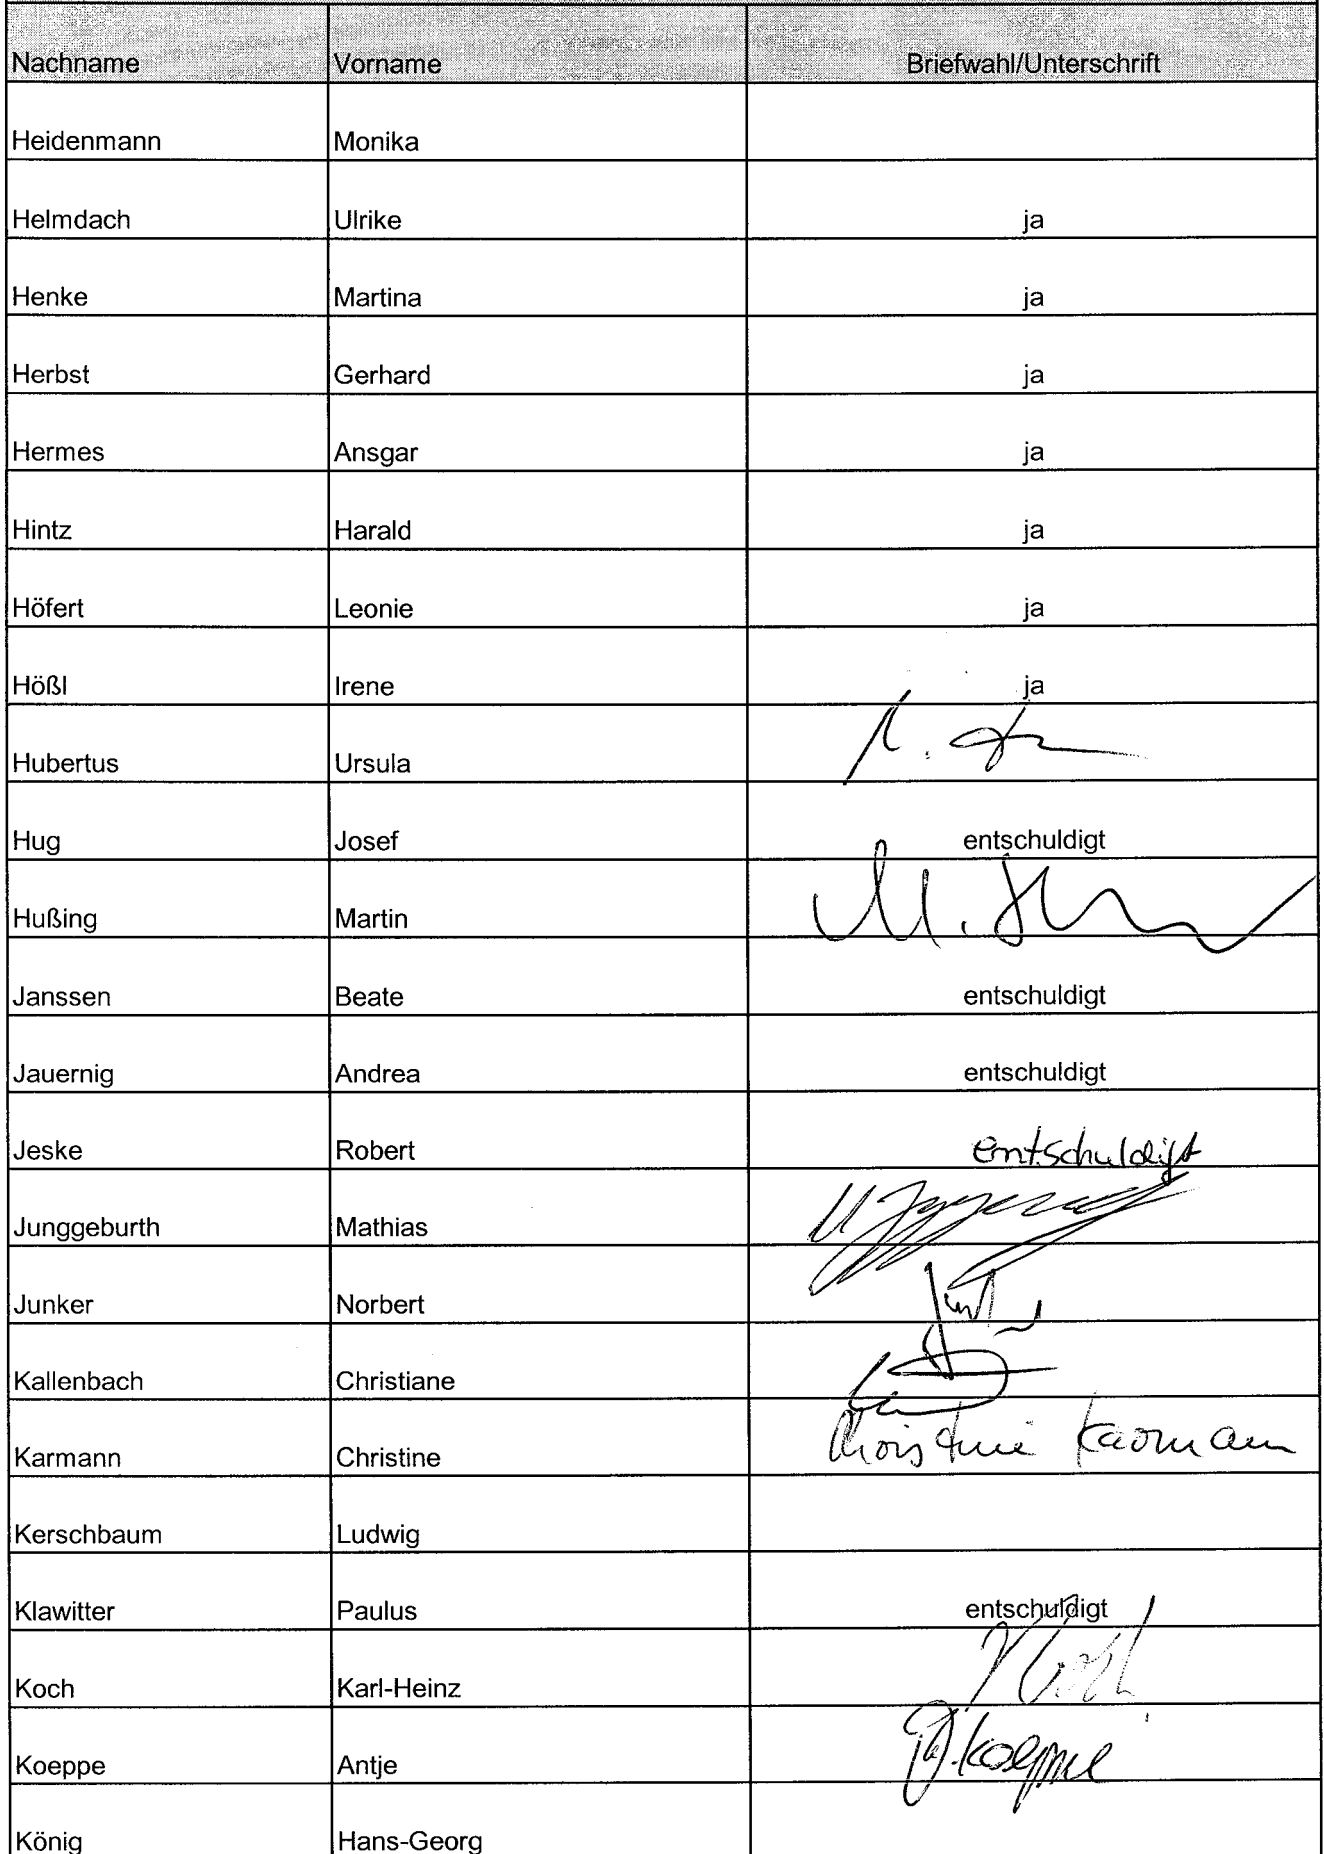 Nachname Vorname Briefwahl/Unterschrift
Heidenmann Monika
Helmdach Ulrike ja
Henke Martina ja
Herbst Gerhard ja
Hermes Ansgar ja
Hintz Harald ja
Höfert Leonie ja
Hößl Irene ja
Hubertus Ursula
Hug Josef entschuldigt
Hußing Martin M.
Janssen Beate entschuldigt
Jauernig Andrea entschuldigt
Jeske Robert entschuldigt
Junggeburth Mathias
Junker Norbert
Kallenbach Christiane
Karmann Christine Christine Karmann
Kerschbaum Ludwig
Klawitter Paulus entschuldigt
Koch Karl-Heinz Koch
Koeppe Antje A. Koeppe
König Hans-Georg